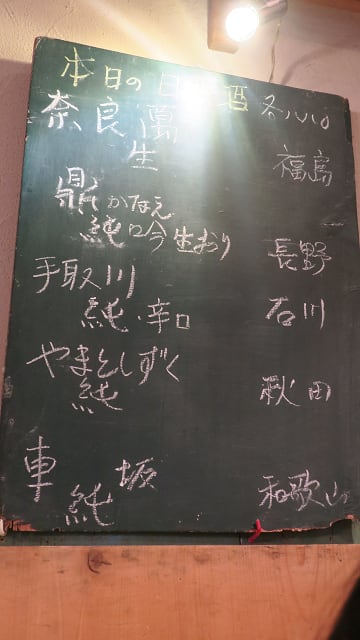 本日の日本酒 各
奈良萬
生
福島
鼎 かなえ
純吟生おり
長野
手取川
純・辛口
石川
やまとしずく
純
秋田
車坂
純
和歌山